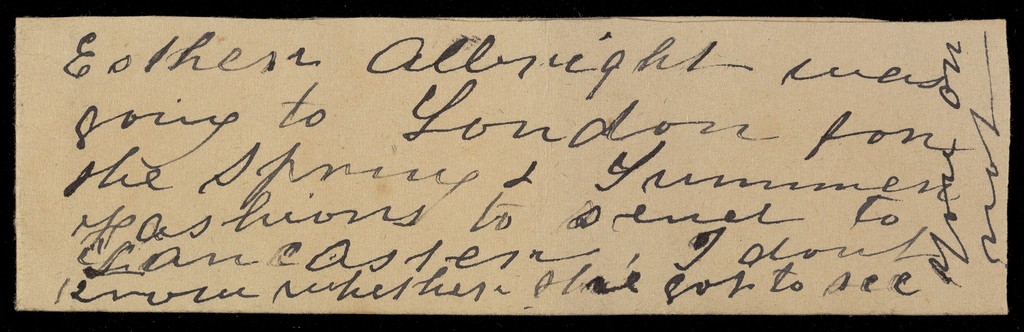 Esther Albright was
going to London for
the Spring & Summer
fashions to send to
Lancaster, I dont
know whether she got to see
you or
not